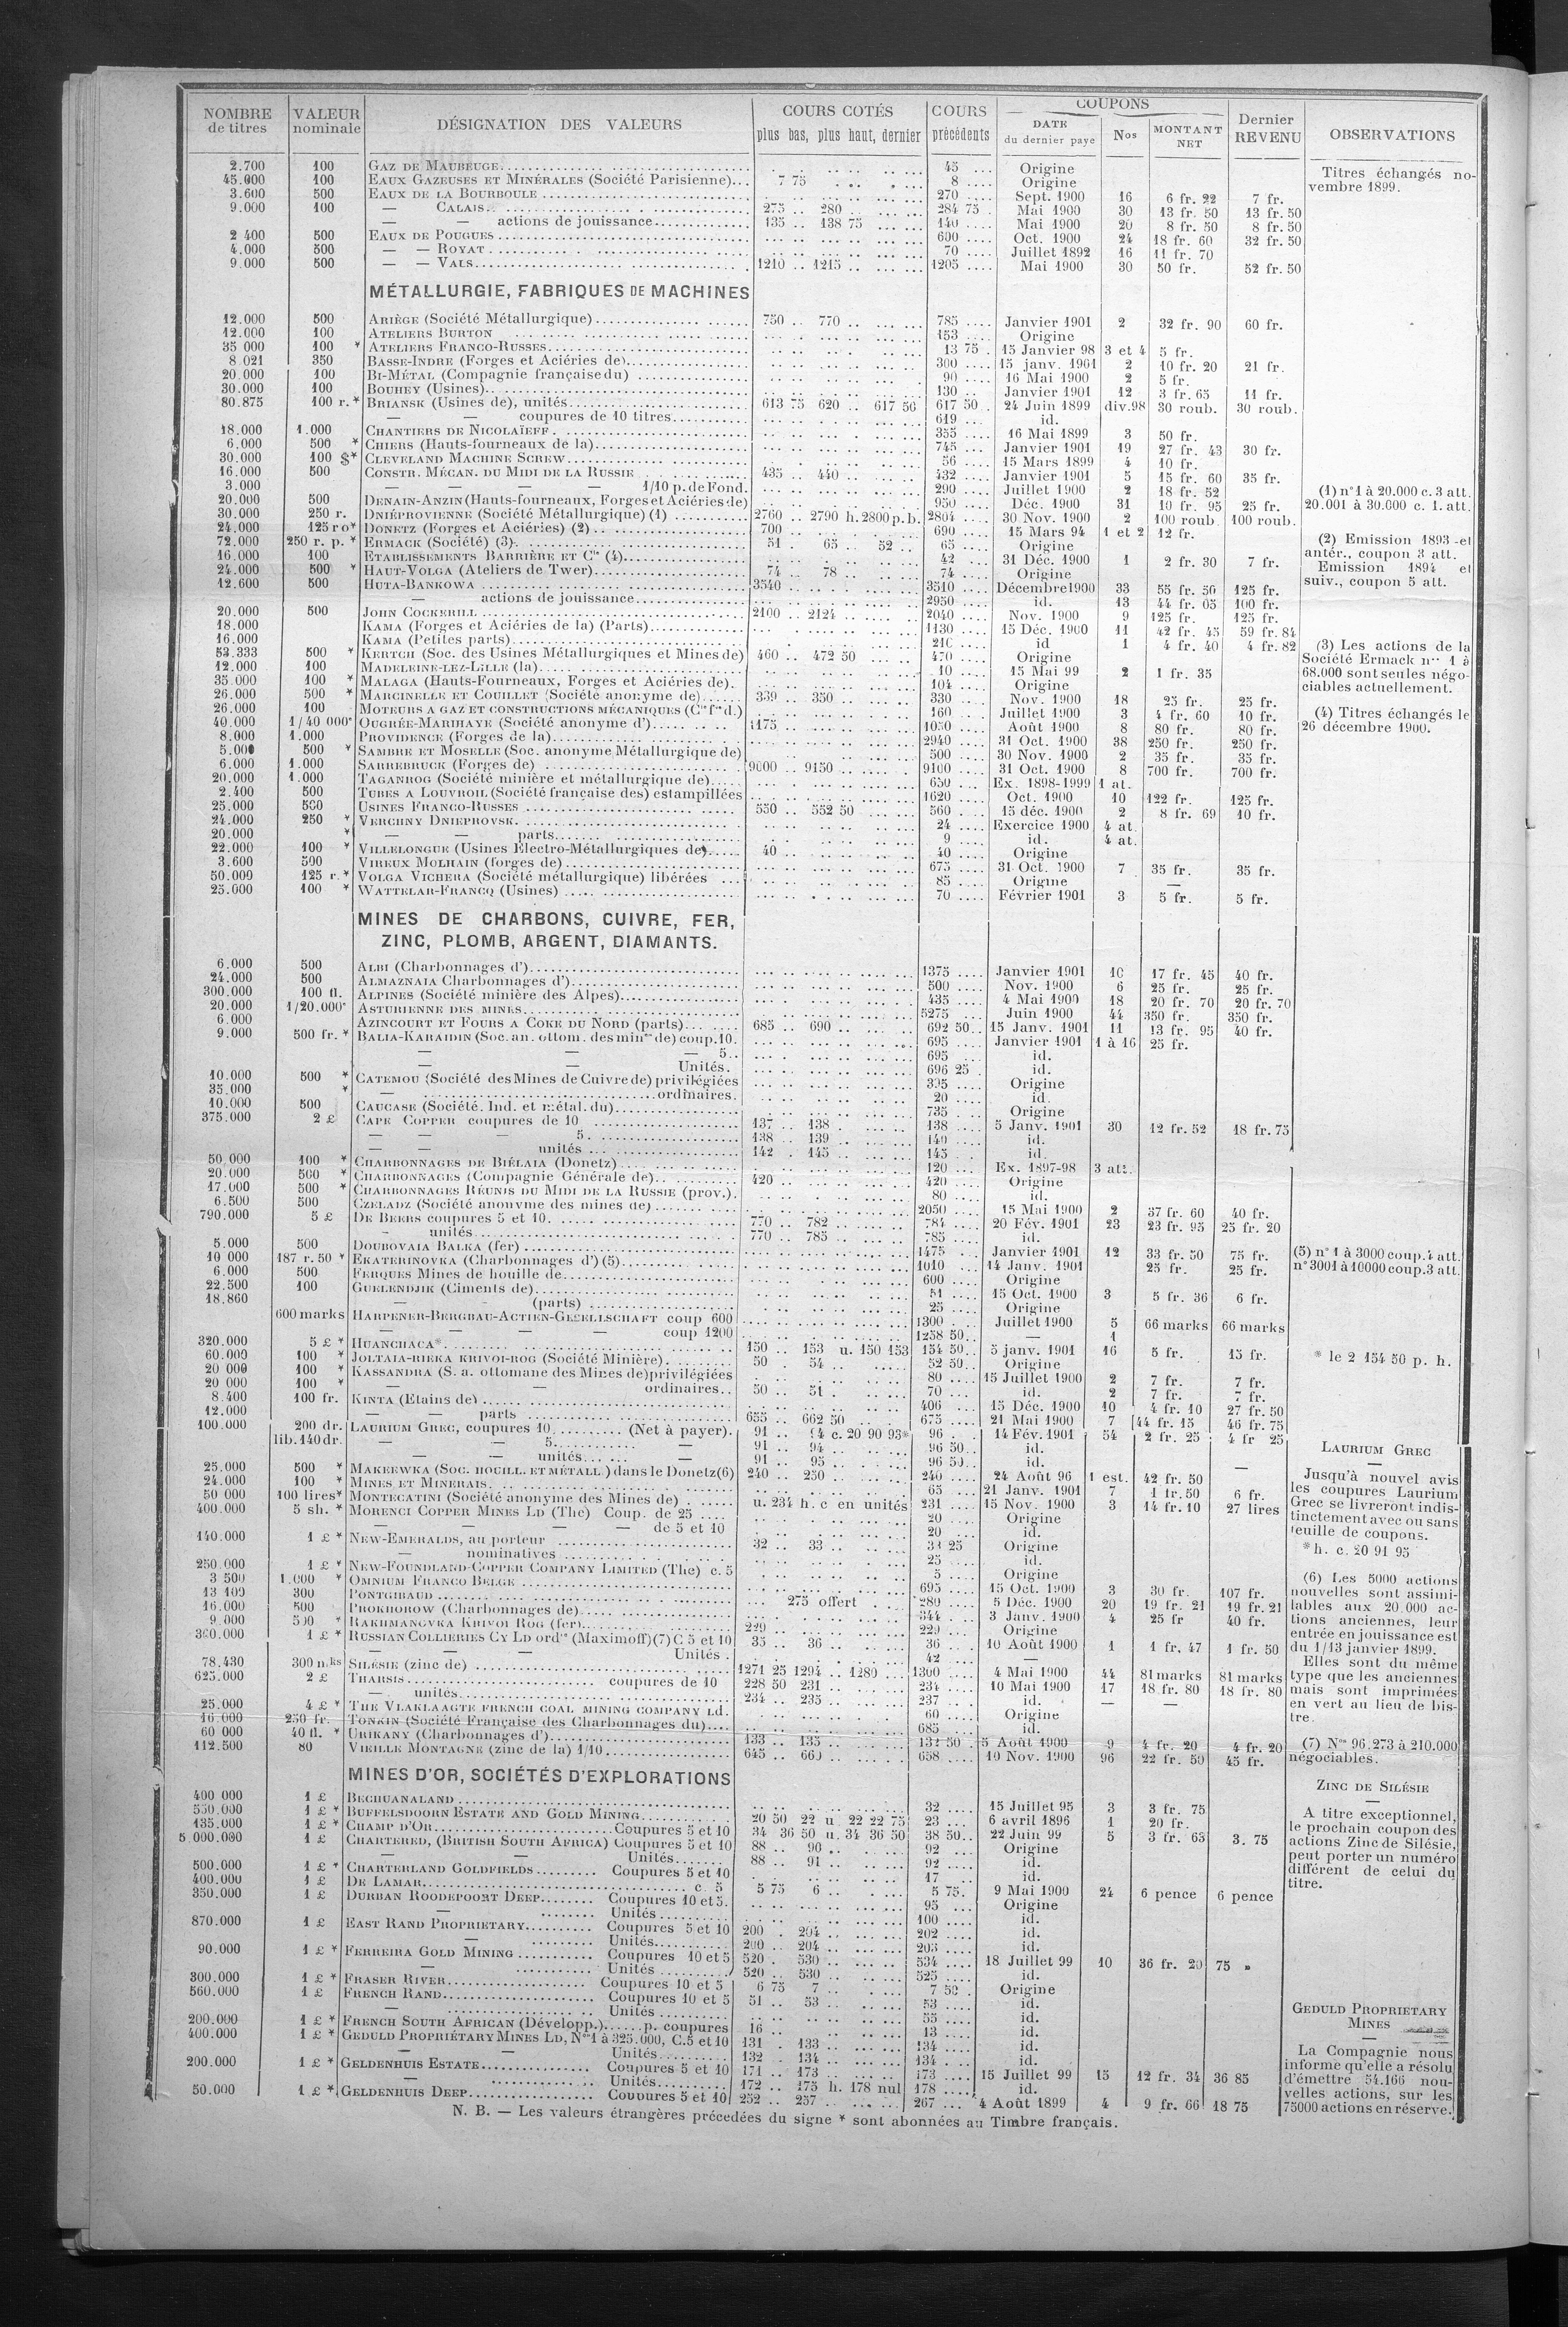 NOMBRE de titres | VALEUR nominale | DÉSIGNATION DES VALEURS | COURS COTÉS plus bas, plus haut, dernier | COURS précédents | COUPONS DATE du dernier paye | Nos | MONTANT NET | Dernier REVENU | OBSERVATIONS
2.700 100 GAZ DE MAUBEUGE 45 Origine
45.000 100 EAUX GAZEUSES ET MINÉRALES (Société Parisienne) 7 75 8 Origine
3.600 500 EAUX DE LA BOURBOULE 270 Sept. 1900 16 6 fr. 22 7 fr.
9.000 100 — CALAIS 275 280 284 75 Mai 1900 30 13 fr. 50 13 fr. 50
— — actions de jouissance 135 138 75 140 Mai 1900 20 8 fr. 50 8 fr. 50
2 400 500 EAUX DE POUGUES 600 Oct. 1900 24 18 fr. 60 32 fr. 50
4.000 500 — — ROYAT 70 Juillet 1892 16 11 fr. 70
9.000 500 — — VALS 1210 1215 1205 Mai 1900 30 50 fr. 52 fr. 50
Titres échangés no-
vembre 1899.
MÉTALLURGIE, FABRIQUES DE MACHINES
12.000 500 ARIÈGE (Société Métallurgique) 750 770 785 Janvier 1901 2 32 fr. 90 60 fr.
12.000 100 ATELIERS BURTON 153 Origine
35 000 100 * ATELIERS FRANCO-RUSSES 13 75 15 Janvier 98 3 et 4 5 fr.
8 021 350 BASSE-INDRE (Forges et Aciéries de) 300 15 janv. 1901 2 10 fr. 20 21 fr.
20.000 100 BI-MÉTAL (Compagnie française du) 90 16 Mai 1900 2 5 fr.
30.000 100 BOUHEY (Usines) 130 Janvier 1901 12 3 fr. 65 11 fr.
80.875 100 r. * BRIANSK (Usines de), unités 613 75 620 617 50 617 50 24 Juin 1899 div.98 30 roub. 30 roub.
— — coupures de 10 titres 619 id.
18.000 1.000 CHANTIERS DE NICOLAÏEFF 355 16 Mai 1899 3 50 fr.
6.000 500 * CHIERS (Hauts-fourneaux de la) 745 Janvier 1901 19 27 fr. 43 30 fr.
30.000 100 $* CLEVELAND MACHINE SCREW 56 15 Mars 1899 4 10 fr.
16.000 500 CONSTR. MÉCAN. DU MIDI DE LA RUSSIE 435 440 432 Janvier 1901 5 15 fr. 60 35 fr.
3.000 — — — — 1/10 p. de Fond. 290 Juillet 1900 2 18 fr. 52
20.000 500 DENAIN-ANZIN (Hauts-fourneaux, Forges et Aciéries de) 950 Déc. 1900 31 10 fr. 95 25 fr.
30.000 250 r. DNIÉPROVIENNE (Société Métallurgique) (1) 2760 2790 h. 2800 p. b. 2804 30 Nov. 1900 2 100 roub. 100 roub.
24.000 125 ro* DONETZ (Forges et Aciéries) (2) 700 690 15 Mars 94 1 et 2 12 fr.
72.000 250 r. p. * ERMACK (Société) (3) 51 65 52 65 Origine
16.000 100 ETABLISSEMENTS BARRIÈRE ET Cie (4) 42 31 Déc. 1900 1 2 fr. 30 7 fr.
24.000 500 * HAUT-VOLGA (Ateliers de Twer) 74 78 74 Origine
12.600 500 HUTA-BANKOWA 3540 3510 Décembre 1900 33 55 fr. 50 125 fr.
— actions de jouissance 2950 id. 13 44 fr. 05 100 fr.
20.000 500 JOHN COCKERILL 2100 2124 2040 Nov. 1900 9 125 fr. 125 fr.
18.000 KAMA (Forges et Aciéries de la) (Parts) 1130 15 Déc. 1900 11 42 fr. 45 59 fr. 84
16.000 KAMA (Petites parts) 210 id 1 4 fr. 40 4 fr. 82
53.333 500 * KERTCH (Soc. des Usines Métallurgiques et Mines de) 460 472 50 470 Origine
12.000 100 MADELEINE-LEZ-LILLE (la) 10 15 Mai 99 2 1 fr. 35
35.000 100 * MALAGA (Hauts-Fourneaux, Forges et Aciéries de) 104 Origine
26.000 500 * MARCINELLE ET COUILLET (Société anonyme de) 339 350 330 Nov. 1900 18 25 fr. 25 fr.
26.000 100 MOTEURS A GAZ ET CONSTRUCTIONS MÉCANIQUES (Cie fse d.) 160 Juillet 1900 3 4 fr. 60 10 fr.
40.000 1/40 000e OUGRÉE-MARIHAYE (Société anonyme d') 1175 1050 Août 1900 8 80 fr. 80 fr.
8.000 1.000 PROVIDENCE (Forges de la) 2940 31 Oct. 1900 38 250 fr. 250 fr.
5.000 500 * SAMBRE ET MOSELLE (Soc. anonyme Métallurgique de) 500 30 Nov. 1900 2 35 fr. 35 fr.
6.000 1.000 SARREBRUCK (Forges de) 9000 9150 9100 31 Oct. 1900 8 700 fr. 700 fr.
20.000 1.000 TAGANROG (Société minière et métallurgique de) 650 Ex. 1898-1999 1 at.
2.400 500 TUBES A LOUVROIL (Société française des) estampillées 1620 Oct. 1900 10 122 fr. 125 fr.
25.000 500 USINES FRANCO-RUSSES 550 552 50 560 15 déc. 1900 2 8 fr. 69 10 fr.
24.000 250 * VERCHNY DNIEPROVSK 24 Exercice 1900 4 at.
20.000 * — — parts 9 id. 4 at.
22.000 100 * VILLELONGUE (Usines Electro-Métallurgiques de) 40 40 Origine
3.600 500 VIREUX MOLHAIN (forges de) 675 31 Oct. 1900 7 35 fr. 35 fr.
50.000 125 r. * VOLGA VICHERA (Société métallurgique) libérées 85 Origine —
25.000 100 * WATTELAR-FRANCQ (Usines) 70 Février 1901 3 5 fr. 5 fr.
(1) n° 1 à 20.000 c. 3 att.
20.001 à 30.600 c. 1. att.
(2) Emission 1893 et
antér., coupon 3 att.
Emission 1894 et
suiv., coupon 5 att.
(3) Les actions de la
Société Ermack nos 1 à
68.000 sont seules négo-
ciables actuellement.
(4) Titres échangés le
26 décembre 1900.
MINES DE CHARBONS, CUIVRE, FER,
ZINC, PLOMB, ARGENT, DIAMANTS.
6.000 500 ALBI (Charbonnages d') 1375 Janvier 1901 10 17 fr. 45 40 fr.
24.000 500 ALMAZNAIA Charbonnages d') 500 Nov. 1900 6 25 fr. 25 fr.
300.000 100 fl. ALPINES (Société minière des Alpes) 435 4 Mai 1900 18 20 fr. 70 20 fr. 70
20.000 1/20.000e ASTURIENNE DES MINES 5275 Juin 1900 44 350 fr. 350 fr.
6.000 AZINCOURT ET FOURS A COKE DU NORD (parts) 685 690 692 50 15 Janv. 1901 11 13 fr. 95 40 fr.
9.000 500 fr. * BALIA-KARAIDIN (Soc. an. ottom. des mines de) coup. 10. 695 Janvier 1901 1 à 16 25 fr.
— — — 5 695 id.
— — Unités. 696 25 id.
10.000 500 * CATEMOU (Société des Mines de Cuivre de) privilégiées 395 Origine
35.000 * — ordinaires. 20 id.
10.000 500 CAUCASE (Société. Ind. et métal. du) 735 Origine
375.000 2 £ CAPE COPPER coupures de 10 137 138 138 5 Janv. 1901 30 12 fr. 52 18 fr. 75
— — — 5. 138 139 140 id.
— — unités 142 145 145 id.
50,000 100 * CHARBONNAGES DE BIÉLAIA (Donetz) 120 Ex. 1897-98 3 att.
20.000 500 * CHARBONNAGES (Compagnie Générale de) 420 420 Origine
17.000 500 * CHARBONNAGES RÉUNIS DU MIDI DE LA RUSSIE (prov.) 80 id.
6.500 500 CZELADZ (Société anonyme des mines de) 2050 15 Mai 1900 2 37 fr. 60 40 fr.
790.000 5 £ DE BEERS coupures 5 et 10. 770 782 784 20 Fév. 1901 23 23 fr. 95 25 fr. 20
- unités 770 785 785 id.
5.000 500 DOUBOVAIA BALKA (fer) 1475 Janvier 1901 12 33 fr. 50 75 fr.
10 000 187 r. 50 * EKATERINOVKA (Charbonnages d') (5) 1010 14 Janv. 1901 25 fr. 25 fr.
6.000 500 FERQUES Mines de houille de 600 Origine
22.500 100 GUELENDJIK (Ciments de) 51 15 Oct. 1900 3 5 fr. 36 6 fr.
18.860 — - (parts) 25 Origine
600 marks HARPENER-BERGBAU-ACTIEN-GESELLSCHAFT coup 600 1300 Juillet 1900 5 66 marks 66 marks
— — — — coup 1200 1258 50 — 1
320.000 5 £ * HUANCHACA* 150 153 u. 150 153 154 50 5 janv. 1901 16 5 fr. 15 fr.
60.000 100 * JOLTAIA-RIEKA KRIVOI-ROG (Société Minière) 50 54 52 50 Origine
20 000 100 * KASSANDRA (S. a. ottomane des Mines de) privilégiées 80 15 Juillet 1900 2 7 fr. 7 fr.
20 000 100 * — — ordinaires 50 51 70 id. 2 7 fr. 7 fr.
8.400 100 fr. KINTA (Etains de) 406 15 Déc. 1900 10 4 fr. 10 27 fr. 50
12.000 — — parts 655 662 50 675 21 Mai 1900 7 44 fr. 15 46 fr. 75
100.000 200 dr. LAURIUM GREC, coupures 10 (Net à payer). 91 94 c. 20 90 93* 96 14 Fév. 1901 54 2 fr. 25 4 fr 25
lib. 140 dr. — — 5 — 91 94 96 50 id.
— — unités — 91 95 96 50 id. —
25.000 500 * MAKEEWKA (SOC. HOUILL. ET MÉTALL.) dans le Donetz (6) 240 250 240 24 Août 96 1 est. 42 fr. 50
24.000 100 * MINES ET MINERAIS 65 21 Janv. 1901 7 1 fr. 50 6 fr.
50 000 100 lires* MONTECATINI (Société anonyme des Mines de) u. 234 h. c en unités 231 15 Nov. 1900 3 14 fr. 10 27 lires
400.000 5 sh. * MORENCI COPPER MINES LD (The) Coup. de 25 20 Origine
— — — — de 5 et 10 20 id.
140.000 1 £ * NEW-EMERALDS, au porteur 32 33 33 25 Origine
— nominatives 25 id.
250.000 1 £ * NEW-FOUNDLAND-COPPER COMPANY LIMITED (The) c. 5 5 Origine
3 500 1.000 * OMNIUM FRANCO BELGE 695 15 Oct. 1900 3 30 fr. 107 fr.
13 100 300 PONTGIBAUD 275 offert 280 5 Déc. 1900 20 19 fr. 21 19 fr. 21
16.000 500 PROKHOROW (Charbonnages de) 344 3 Janv. 1900 4 25 fr 40 fr.
9.000 500 * RAKHMANOVKA KRIVOI ROG (fer) 229 229 Origine
360.000 1 £ * RUSSIAN COLLIERIES CY LD ordres (Maximoff) (7) C 5 et 10 35 36 36 10 Août 1900 1 1 fr. 47 1 fr. 50
— Unités. 42 —
78.430 300 m.ks SILÉSIE (zinc de) 1271 25 1294 1280 1300 4 Mai 1900 44 81 marks 81 marks
625.000 2 £ THARSIS coupures de 10 228 50 231 234 10 Mai 1900 17 18 fr. 80 18 fr. 80
— unités 234 235 237 id. — —
25.000 4 £ * THE VLAKLAAGTE FRENCH COAL MINING COMPANY LD. 60 Origine
16.000 250 fr. TONKIN (Société Française des Charbonnages du) 685 id.
60 000 40 fl. * URIKANY (Charbonnages d') 133 135 132 50 5 Août 1900 9 4 fr. 20 4 fr. 20
112.500 80 VIEILLE MONTAGNE (zinc de la) 1/10 645 660 658 10 Nov. 1900 96 22 fr. 50 45 fr.
(5) n° 1 à 3000 coup. 4 att.
n° 3001 à 10000 coup. 3 att.
* le 2 154 50 p. h.
LAURIUM GREC
—
Jusqu'à nouvel avis
les coupures Laurium
Grec se livreront indis-
tinctement avec ou sans
feuille de coupons.
* h. c. 20 91 95
(6) Les 5000 actions
nouvelles sont assimi-
lables aux 20.000 ac-
tions anciennes, leur
entrée en jouissance est
du 1/13 janvier 1899.
Elles sont du même
type que les anciennes
mais sont imprimées
en vert au lieu de bis-
tre.
(7) Nos 96.273 à 210.000
négociables.
MINES D'OR, SOCIÉTÉS D'EXPLORATIONS
400 000 1 £ BECHUANALAND 32 15 Juillet 95 3 3 fr. 75
550.000 1 £ * BUFFELSDOORN ESTATE AND GOLD MINING 20 50 22 u. 22 22 75 23 6 avril 1896 1 20 fr.
135.000 1 £ * CHAMP D'OR Coupures 5 et 10 34 36 50 u. 34 36 50 38 50 22 Juin 99 5 3 fr. 65 3. 75
5 000.000 1 £ CHARTERED, (BRITISH SOUTH AFRICA) Coupures 5 et 10 88 90 92 Origine
— Unités 88 91 92 id.
500.000 1 £ * CHARTERLAND GOLDFIELDS Coupures 5 et 10 17 id.
400.000 1 £ DE LAMAR c. 5 5 75 6 5 75. 9 Mai 1900 24 6 pence 6 pence
350.000 1 £ DURBAN ROODEPOORT DEEP Coupures 10 et 5. 95 Origine
— Unités 100 id.
870.000 1 £ EAST RAND PROPRIETARY Coupures 5 et 10 200 204 202 id.
— Unités 200 204 203 id.
90.000 1 £ * FERREIRA GOLD MINING Coupures 10 et 5 520 530 534 18 Juillet 99 10 36 fr. 20 75 »
— Unités 520 530 525 id.
300.000 1 £ * FRASER RIVER Coupures 10 et 5 6 75 7 7 50 Origine
560.000 1 £ FRENCH RAND Coupures 10 et 5 51 53 53 id.
— Unités 55 id.
200.000 1 £ * FRENCH SOUTH AFRICAN (Développ.) p. coupures 16 13 id.
400.000 1 £ * GEDULD PROPRIÉTARY MINES LD, Nos 1 à 325.000, C. 5 et 10 131 133 134 id.
— — Unités 132 134 134 id.
200.000 1 £ * GELDENHUIS ESTATE Coupures 5 et 10 171 173 173 15 Juillet 99 15 12 fr. 34 36 85
— Unités 172 175 h. 178 nul 178 id.
50.000 1 £ * GELDENHUIS DEEP Coupures 5 et 10 252 257 267 4 Août 1899 4 9 fr. 66 18 75
ZINC DE SILÉSIE
—
A titre exceptionnel,
le prochain coupon des
actions Zinc de Silésie,
peut porter un numéro
différent de celui du
titre.
GEDULD PROPRIETARY
MINES
—
La Compagnie nous
informe qu'elle a résolu
d'émettre 54.166 nou-
velles actions, sur les
75000 actions en réserve.
N. B. — Les valeurs étrangères précedées du signe * sont abonnées au Timbre français.